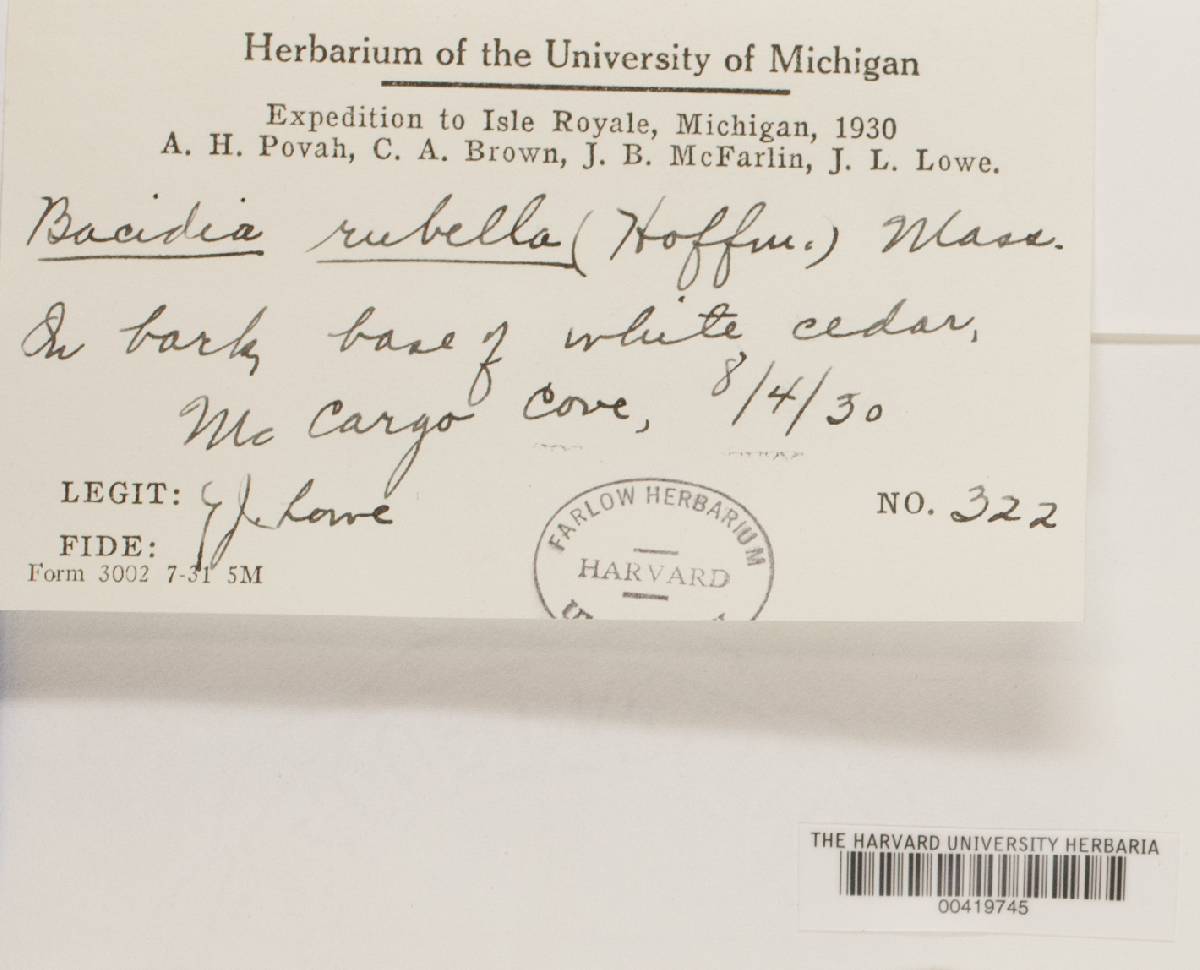 Herbarium of the University of Michigan
Expedition to Isle Royale, Michigan, 1930
A. H. Povah, C. A. Brown, J. B. McFarlin, J. L. Lowe.
Bacidia rubella (Hoffm.) Mass.
On bark, base of white cedar,
Mc Cargo Cove, 8/4/30
LEGIT: J. Lowe
NO. 322
FIDE:
Form 3002 7-31 5M
FARLOW HERBARIUM
HARVARD
THE HARVARD UNIVERSITY HERBARIA
00419745